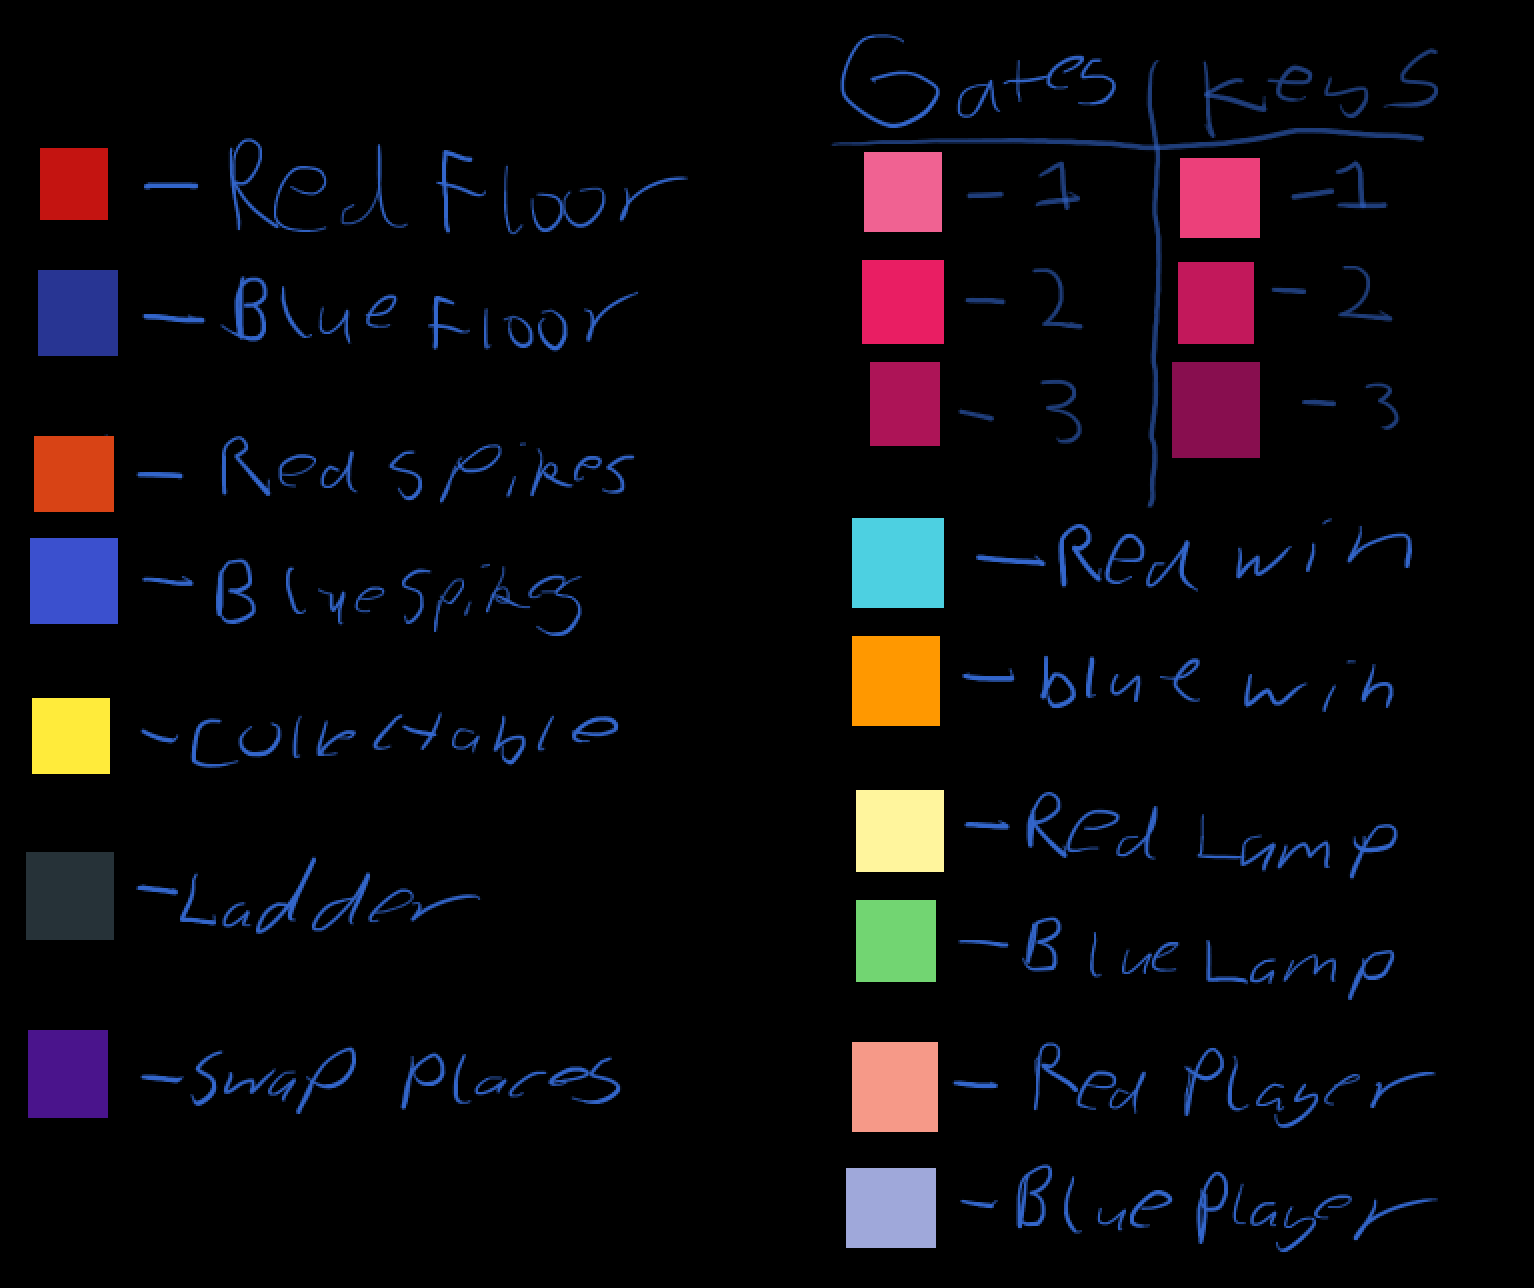 Red Floor
Blue Floor
Red Spikes
Blue Spikes
Collectable
Ladder
Swap Places
Gates | Keys
- 1 - 1
- 2 - 2
- 3 - 3
Red win
blue win
Red Lamp
Blue Lamp
Red Player
Blue Player